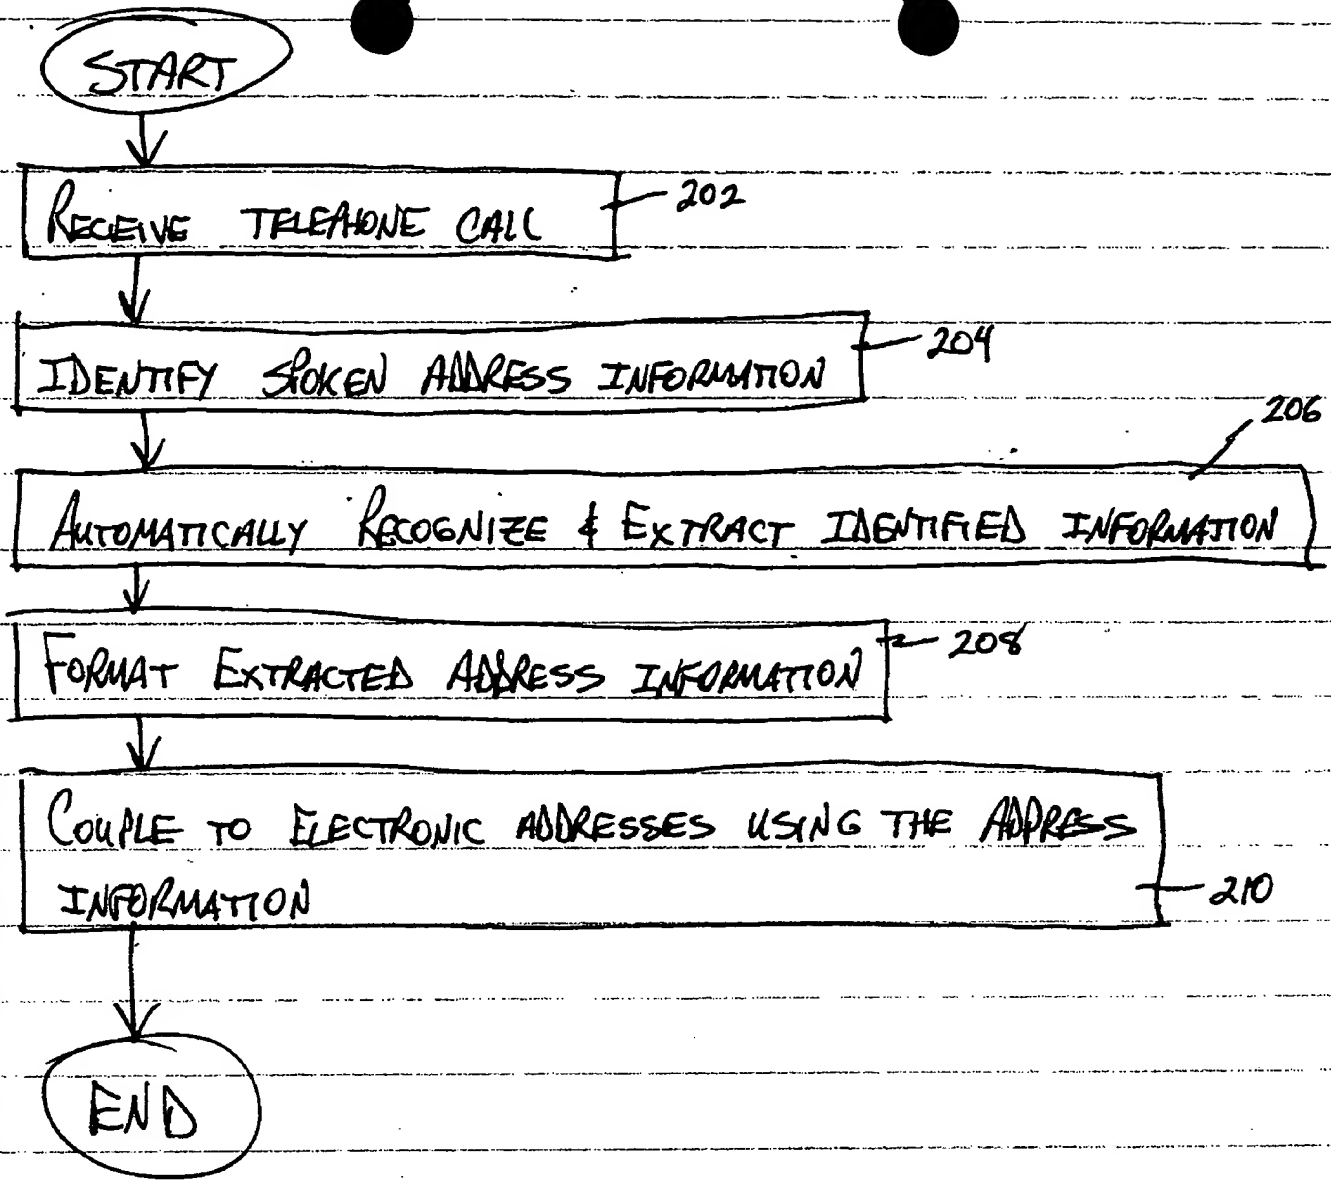 START
RECEIVE TELEPHONE CALL
202
IDENTIFY SPOKEN ADDRESS INFORMATION
204
206
AUTOMATICALLY RECOGNIZE & EXTRACT IDENTIFIED INFORMATION
FORMAT EXTRACTED ADDRESS INFORMATION
208
COUPLE TO ELECTRONIC ADDRESSES USING THE ADDRESS
INFORMATION
210
END